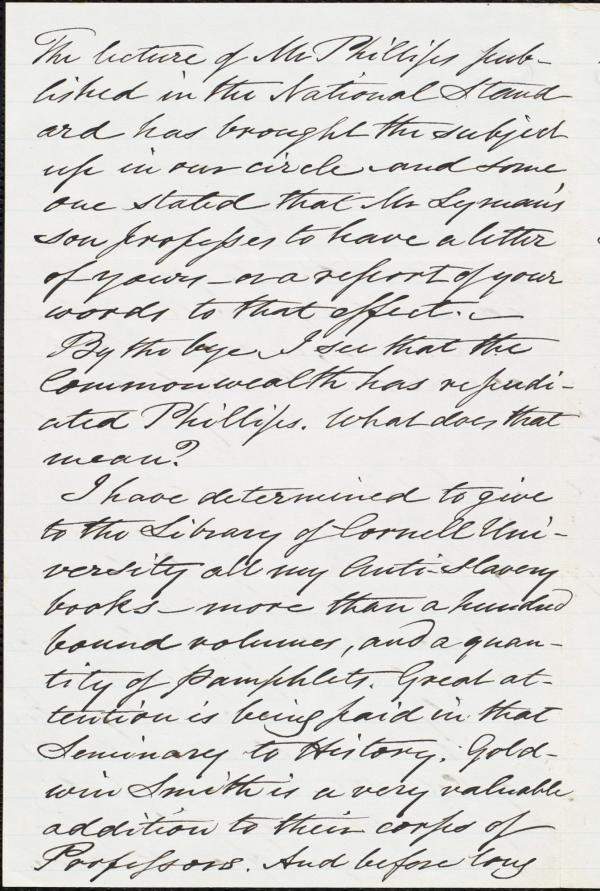 The lecture of Mr Phillips pub-
lished in the National Stand
ard has brought the subject
up in our circle and some
one stated that Mr Lyman's
son professes to have a letter
of yours – or a report of your
words to that effect. –
By the bye I see that the
Commonwealth has repudi-
ated Phillips. What does that
mean?
I have determined to give
to the Library of Cornell Uni-
versity all my Anti-Slavery
books – more than a hundred
bound volumes, and a quan-
tity of Pamphlets. Great at-
tention is being paid in that
Seminary to History. Gold-
win Smith is a very valuable
addition to their corps of
Professors. And before long